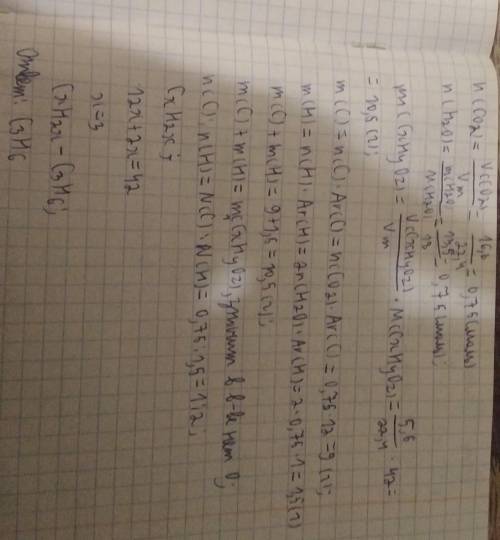 n(CO2) = V(CO2)/Vm = 16,8/22,4 = 0,75 (моль)
n(H2O) = m(H2O)/M(H2O) = 13,5/18 = 0,75 (моль);
m(CxHyOz) = V(CxHyOz)/Vm · M(CxHyOz) = 5,6/22,4 · 42 =
= 10,5 (г);
m(C) = n(C) · Ar(C) = n(CO2) · Ar(C) = 0,75 · 12 = 9 (г);
m(H) = n(H) · Ar(H) = 2n(H2O) · Ar(H) = 2 · 0,75 · 1 = 1,5 (г)
m(C) + m(H) = 9 + 1,5 = 10,5 (г);
m(C) + m(H) = m(CxHyOz), значит в в-ве нем O;
n(C) : n(H) = N(C) : N(H) = 0,75 : 1,5 = 1:2;
CxH2x;
12x + 2x = 42
x = 3
CxH2x - C3H6;
Ответ: C3H6